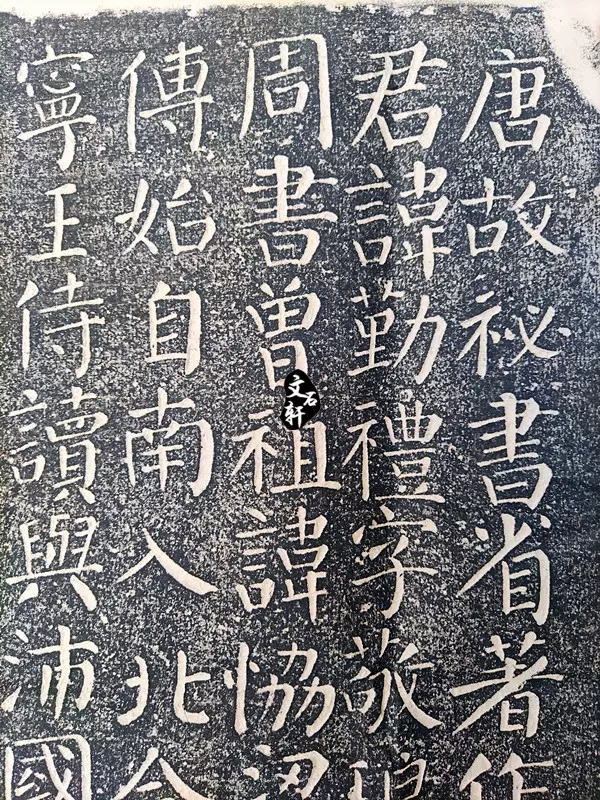 唐故祕書省著作
君諱勤禮字敬
周書曾祖諱協
傳始自南入北
寧王侍讀與沛國
文石軒